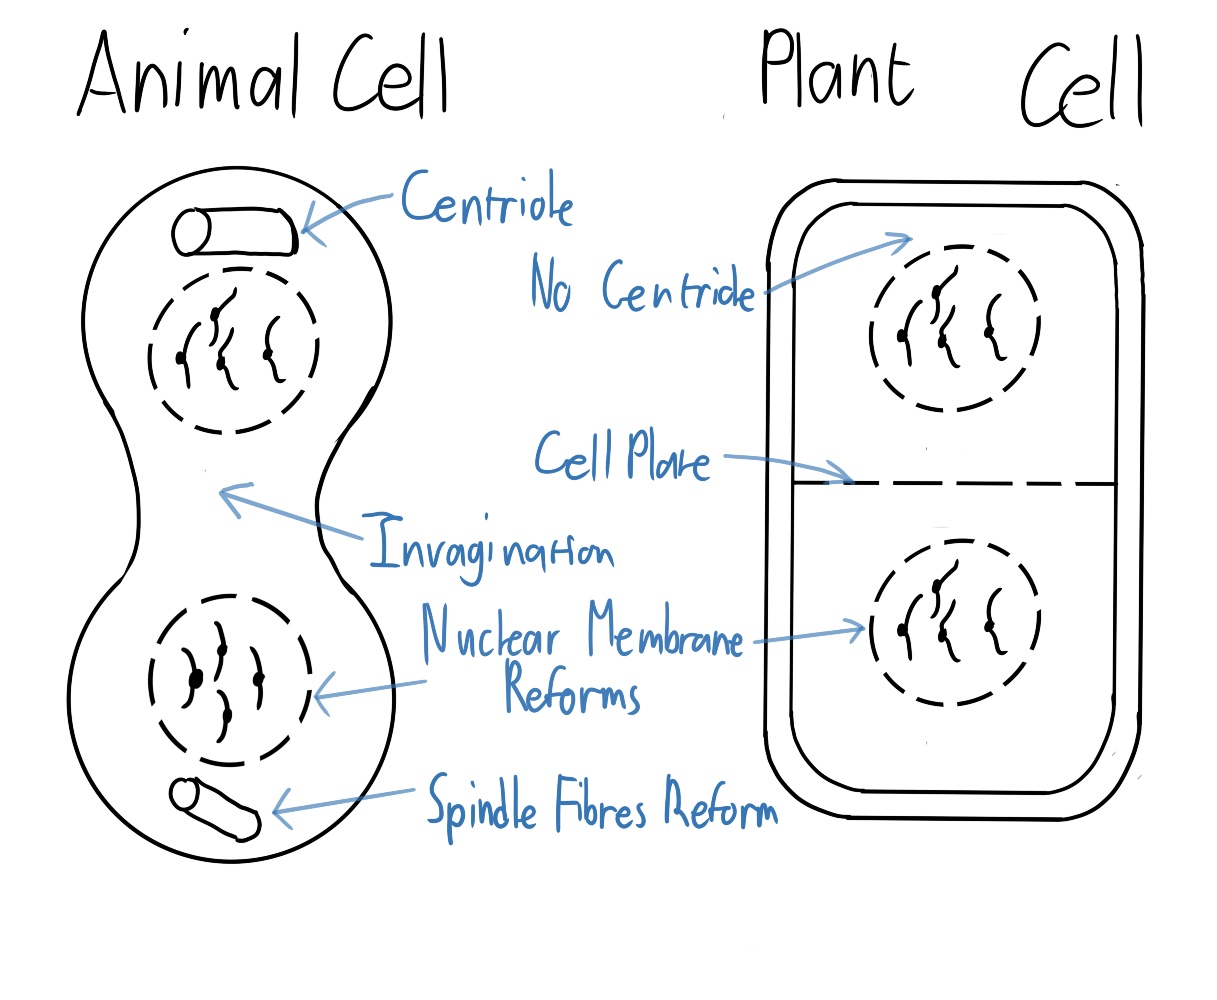 Animal Cell
Plant Cell
Centriole
No Centriole
Cell Plate
Invagination
Nuclear Membrane
Reforms
Spindle Fibres Reform